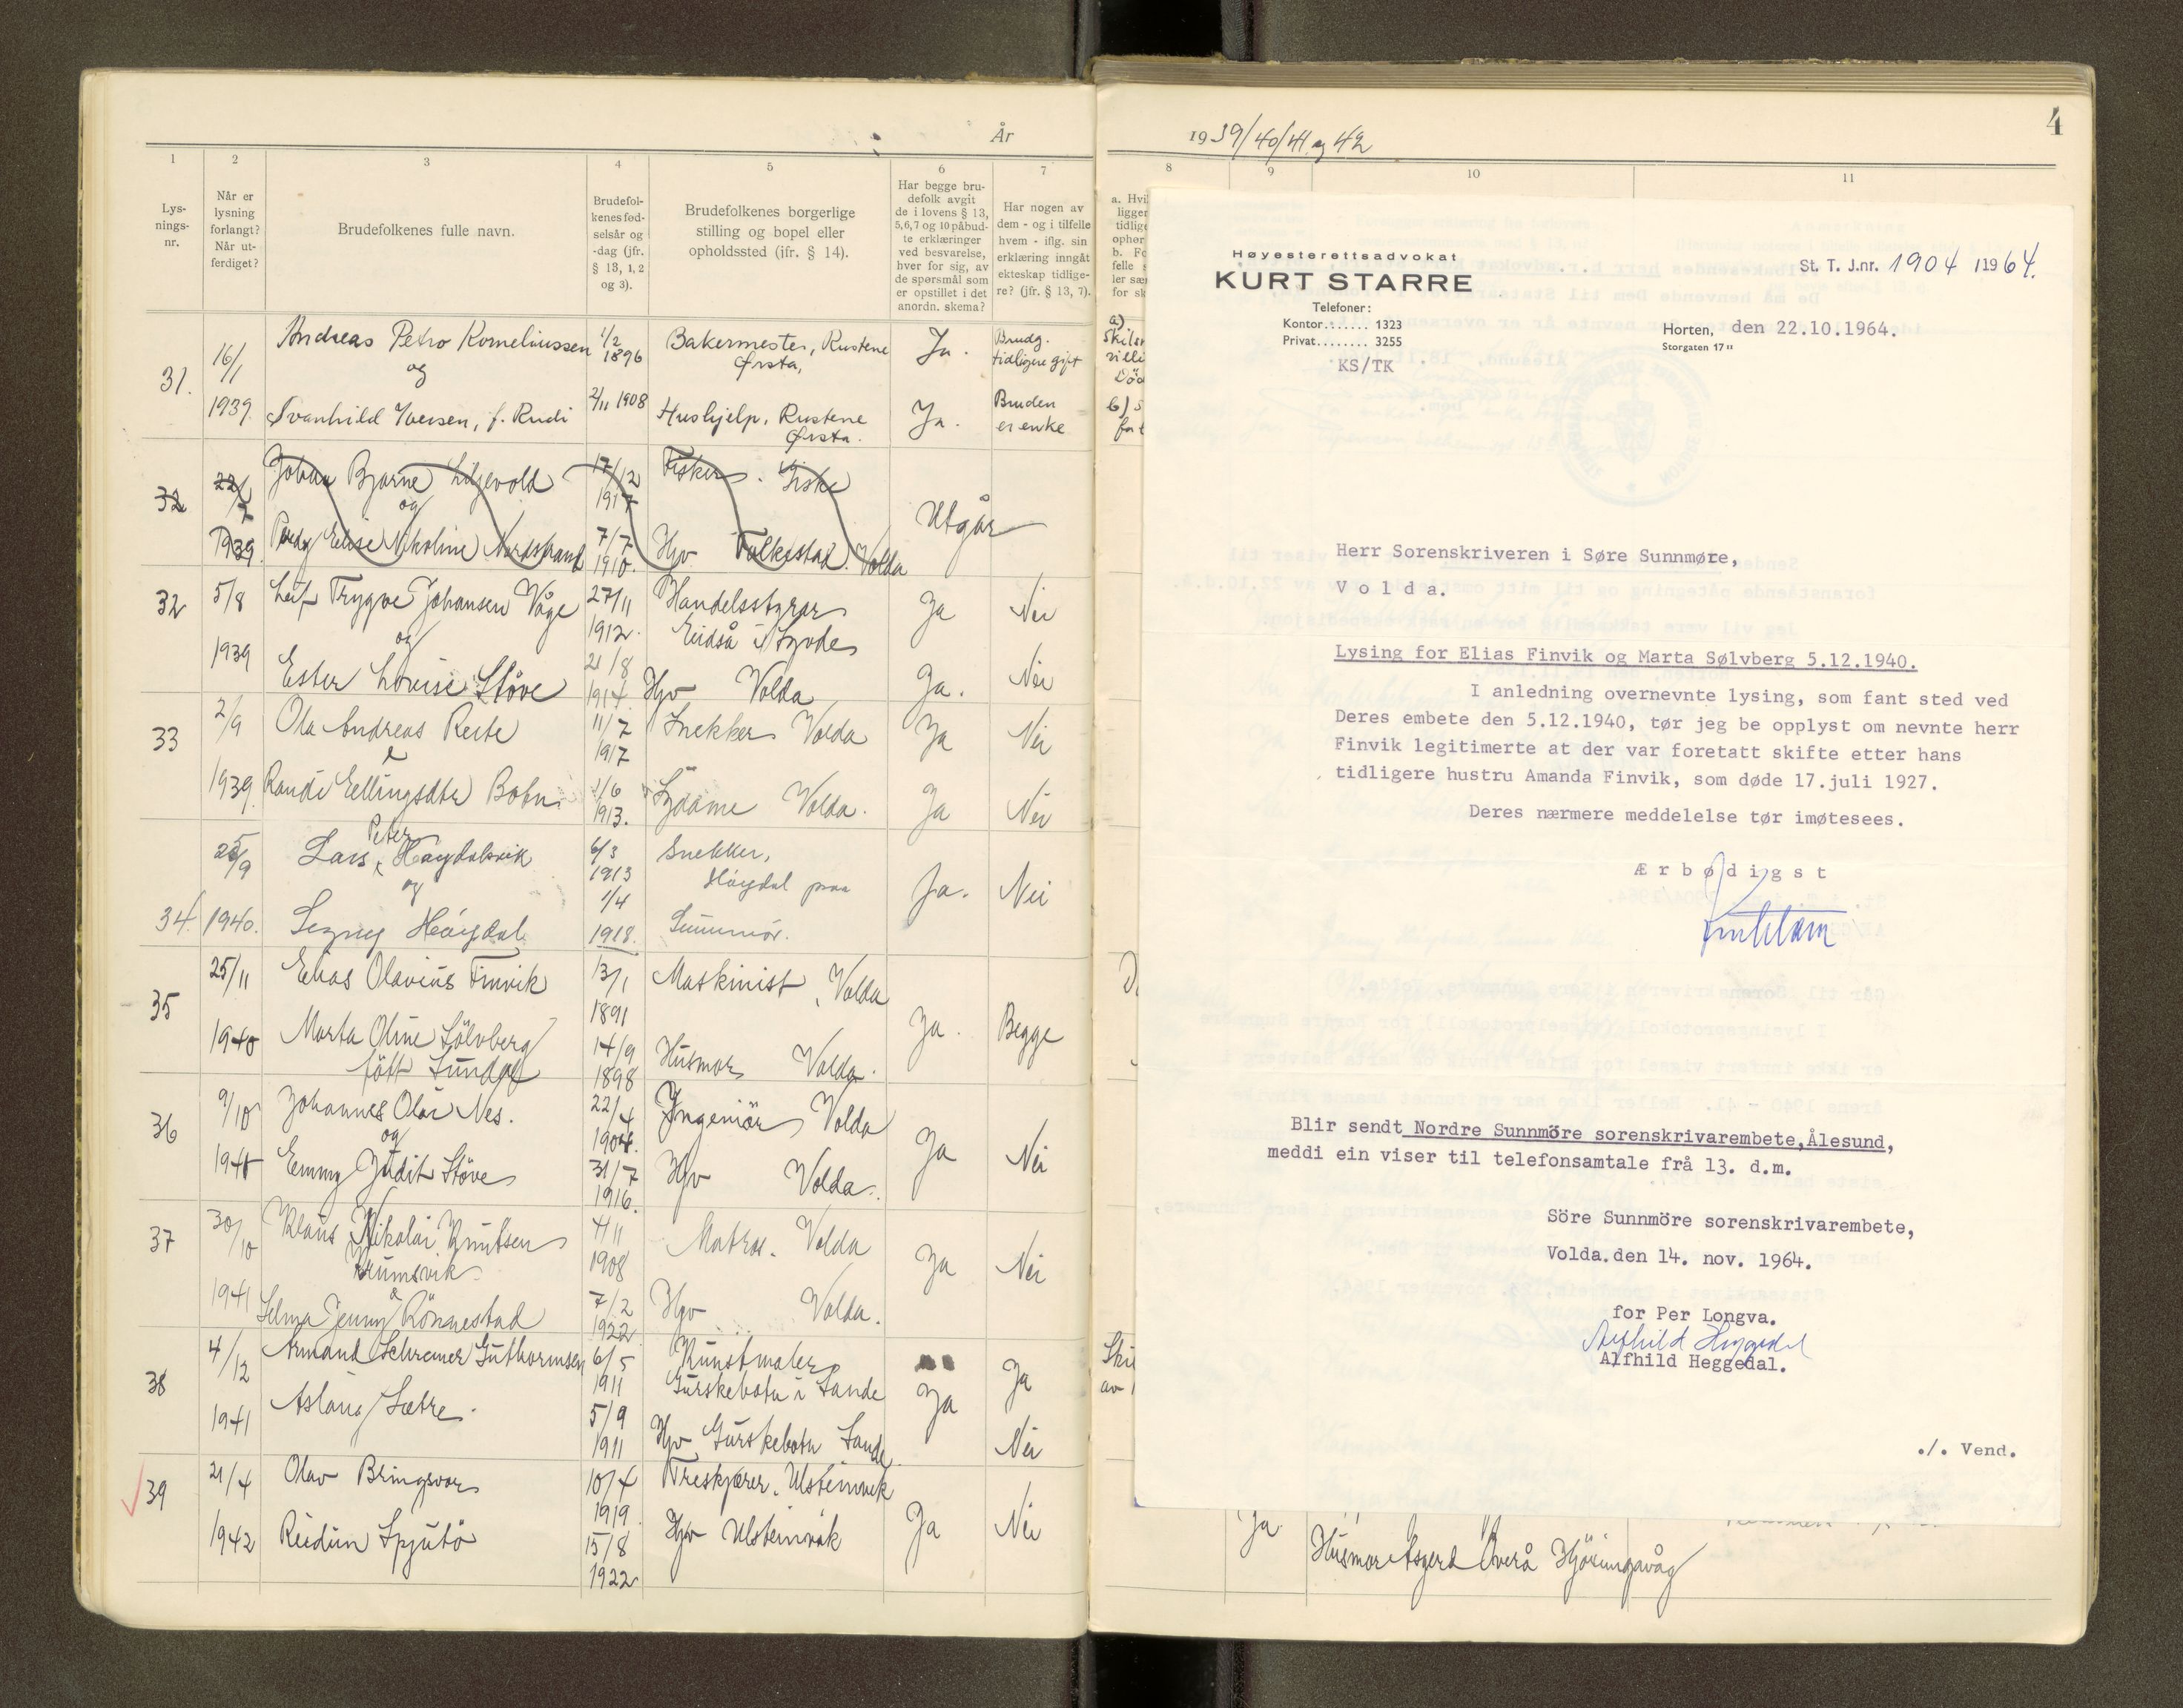 År
1 2 3 4 5 6 7
Lys-
nings-
nr.
Når er
lysning
forlangt?
Når ut-
ferdiget?
Brudefolkenes fulle navn.
Brudefol-
kenes fød-
selsår og
-dag (jfr.
§ 13, 1, 2
og 3).
Brudefolkenes borgerlige
stilling og bopel eller
opholdssted (ifr. § 14).
Har begge bru-
defolk avgit
de i lovens § 13,
5, 6, 7 og 10 påbud-
te erklæringer
ved besvarelse,
hver for sig, av
de spørsmål som
er opstillet i det
anordn. skema?
Har nogen av
dem - og i tilfelle
hvem - iflg. sin
erklæring inngåt
ekteskap tidlige-
re? (jfr. § 13, 7).
31.
16/1
1939.
Andreas Petro Korneliussen
og
Svanhild Iversen, f. Rudi
1/2
1896
2/11 1908
Bakermester, Rustene
Ørsta,
Hushjelp, Rustene
Ørsta.
Ja.
Ja.
Brudg.
tidligere gift
Bruden
er enke
32
22/7
1939.
Johan Bjarne Liljevold
og
Pedy Elise Nikoline Nordstrand
17/12
1917
7/7
1910.
Fisker. Giske
Hjv Folkestad. Volda
Utgår
32
5/8
1939
Leif Trygve Johansen Våge
og
Ester Lovise Støve
27/11
1912.
21/8
1914.
Handelsstyrar
Eidså i Syvde
Hjv Volda
Ja
Ja.
Nei
Nei
33
2/9
1939.
Ola Andreas Reite
&
Randi Ellingsdtr
11/7
1917
1/6
1913.
Snekker Volda
Sydame Volda.
Ja
Ja
Nei
Nei
34.
25/9
1940.
Lars Peter Høydalsvik
og
Signy Høydal
6/3
1913
1/4
1918.
Snekker,
Høydal paa
Sunnmør.
Ja.
Nei
35
25/11
1940
Elias Olavius Finvik
Marta Oline Sölvberg
född
13/1
1891
14/9
1898
Maskinist, Volda
Husmor Volda.
Ja.
Begge
36
9/10
1940
Johannes Olai Nes.
og
Emmy Judit Støve
22/4
1904.
31/7
1916.
Ingeniör Volda
Hjv Volda.
Ja
Nei
37
30/10
1941
Klaus Nikolai Knutsen
Krumsvik
&
Selma Jenny Rönnestad
4/11
1908
7/2
1922
Matros. Volda
Hjv Volda.
Ja
Nei
38
4/12
1941
Armand Schreiner Guthormsen
Aslaug Sætre.
6/5
1911
5/9
1911
Kunstmaler
Gurskebotn i Sande
Hjv Gurskebotn Sande
Ja
Ja
Nei
39
21/4
1942
Olav Bringsvor
Reidun Spjutø
10/4
1919
15/8
1922
Treskjærer. Ulsteinvik
Hjv Ulsteinvik
Ja
Nei
4
1939/40/41 og 42
8 9 10 11
Høyesterettsadvokat
KURT STARRE
Telefoner:
Kontor....... 1323
Privat........ 3255
KS/TK
St. T. J.nr. 1904 /1964.
Horten, den 22.10.1964.
Storgaten 17 II
Herr Sorenskriveren i Søre Sunnmøre,
V o l d a.
Lysing for Elias Finvik og Marta Sølvberg 5.12.1940.
I anledning overnevnte lysing, som fant sted ved
Deres embete den 5.12.1940, tør jeg be opplyst om nevnte herr
Finvik legitimerte at der var foretatt skifte etter hans
tidligere hustru Amanda Finvik, som døde 17.juli 1927.
Deres nærmere meddelelse tør imøtesees.
Æ r b ø d i g s t
Blir sendt Nordre Sunnmöre sorenskrivarembete,Ålesund,
meddi ein viser til telefonsamtale frå 13. d.m.
Söre Sunnmöre sorenskrivarembete,
Volda.den 14. nov. 1964.
for Per Longva.
Alfhild Heggedal
Alfhild Heggedal.
./. Vend.
Ja
Husmor Asgerd Overå Hjörungavåg